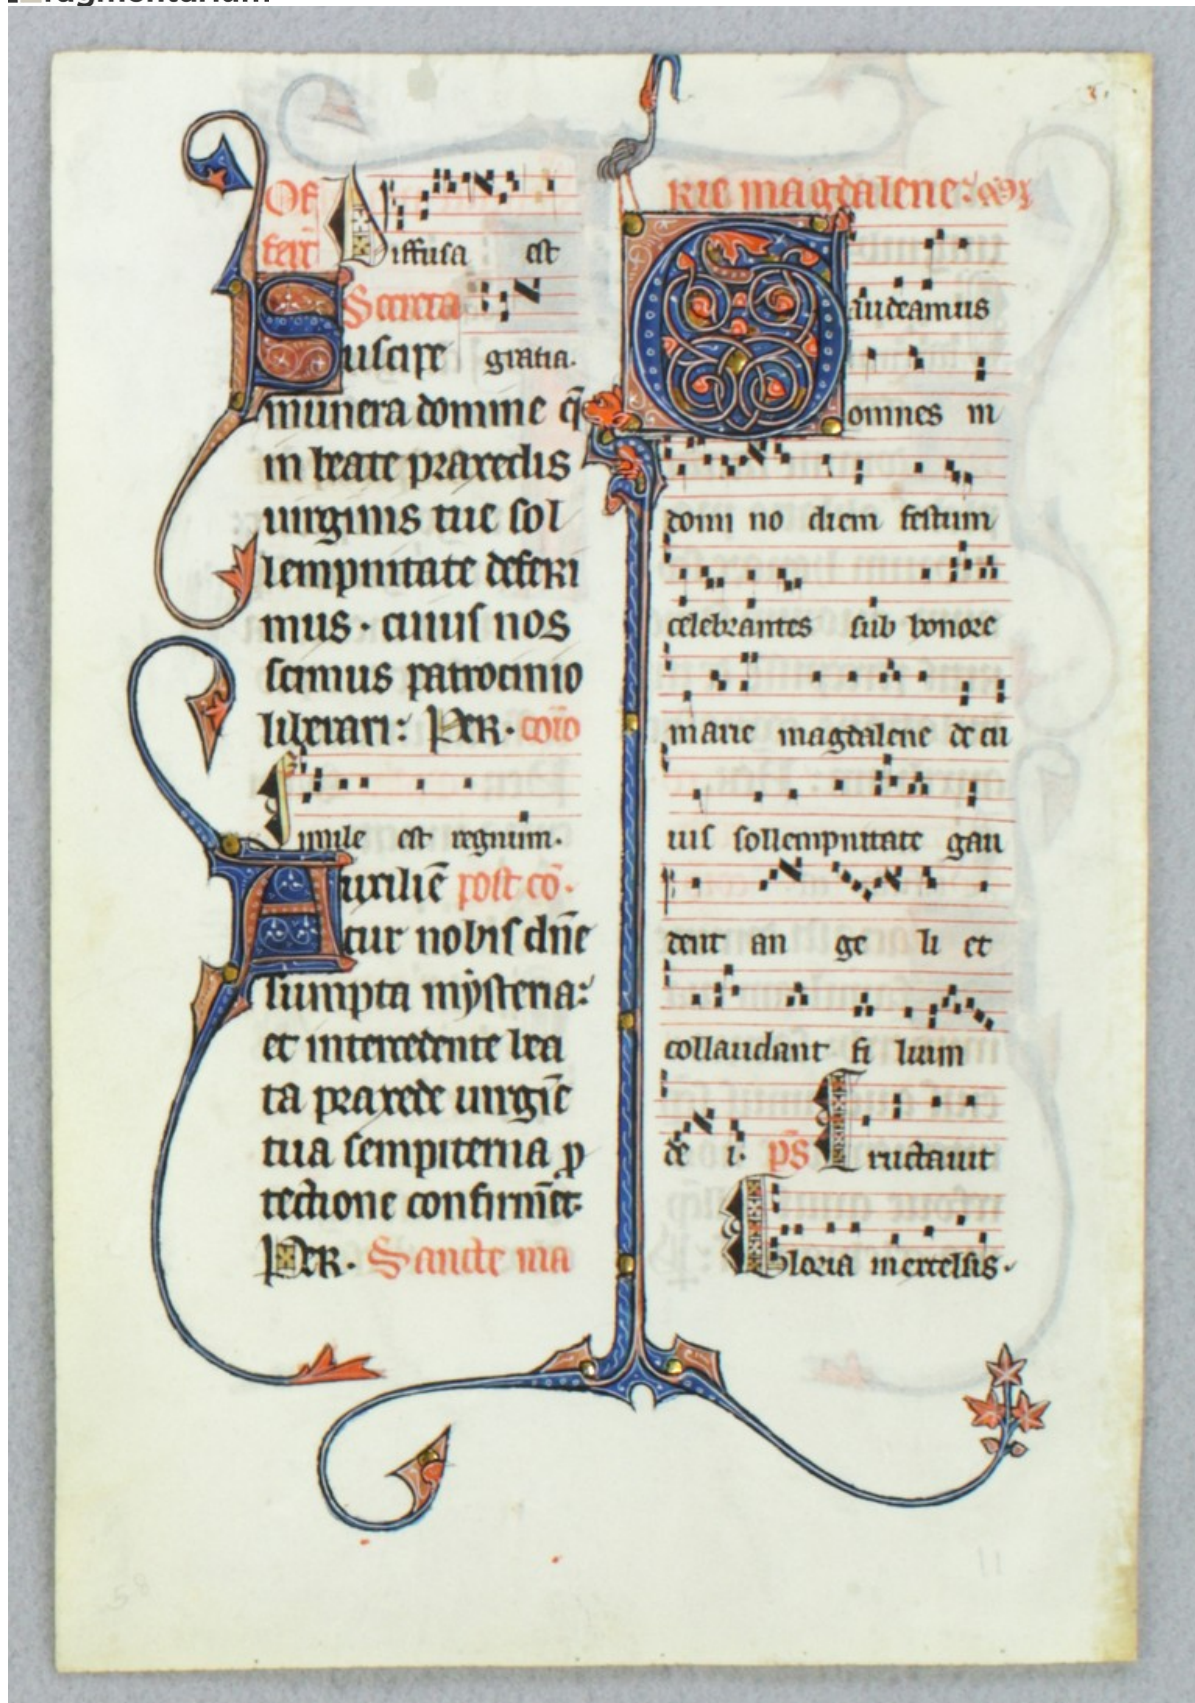 fragmentarium
Offert
Diffusa est
Secreta
Suscipe gratia.
munera domine q̄
in beate praxedis
uirginis tue sol
lempnitate deferi
mus. cuius nos
scimus patrocinio
liberari: Per. coīo
Simile est regnum.
Auxiliē post cō.
tur nobis dn̄e
sumpta mẏsteria:
et intercedente bea
ta praxede uirgīe
tua sempiterna ꝓ
tectione confirmēt.
Per. Sancte ma
rie magdalene:
Gaudeamus
omnes in
domi no diem festum
celebrantes sub honore
marie magdalene de cu
ius sollempnitate gau
dent an ge li et
collaudant fi lium
de i. p̄s Eructauit
Gloria in excelsis.
58
11